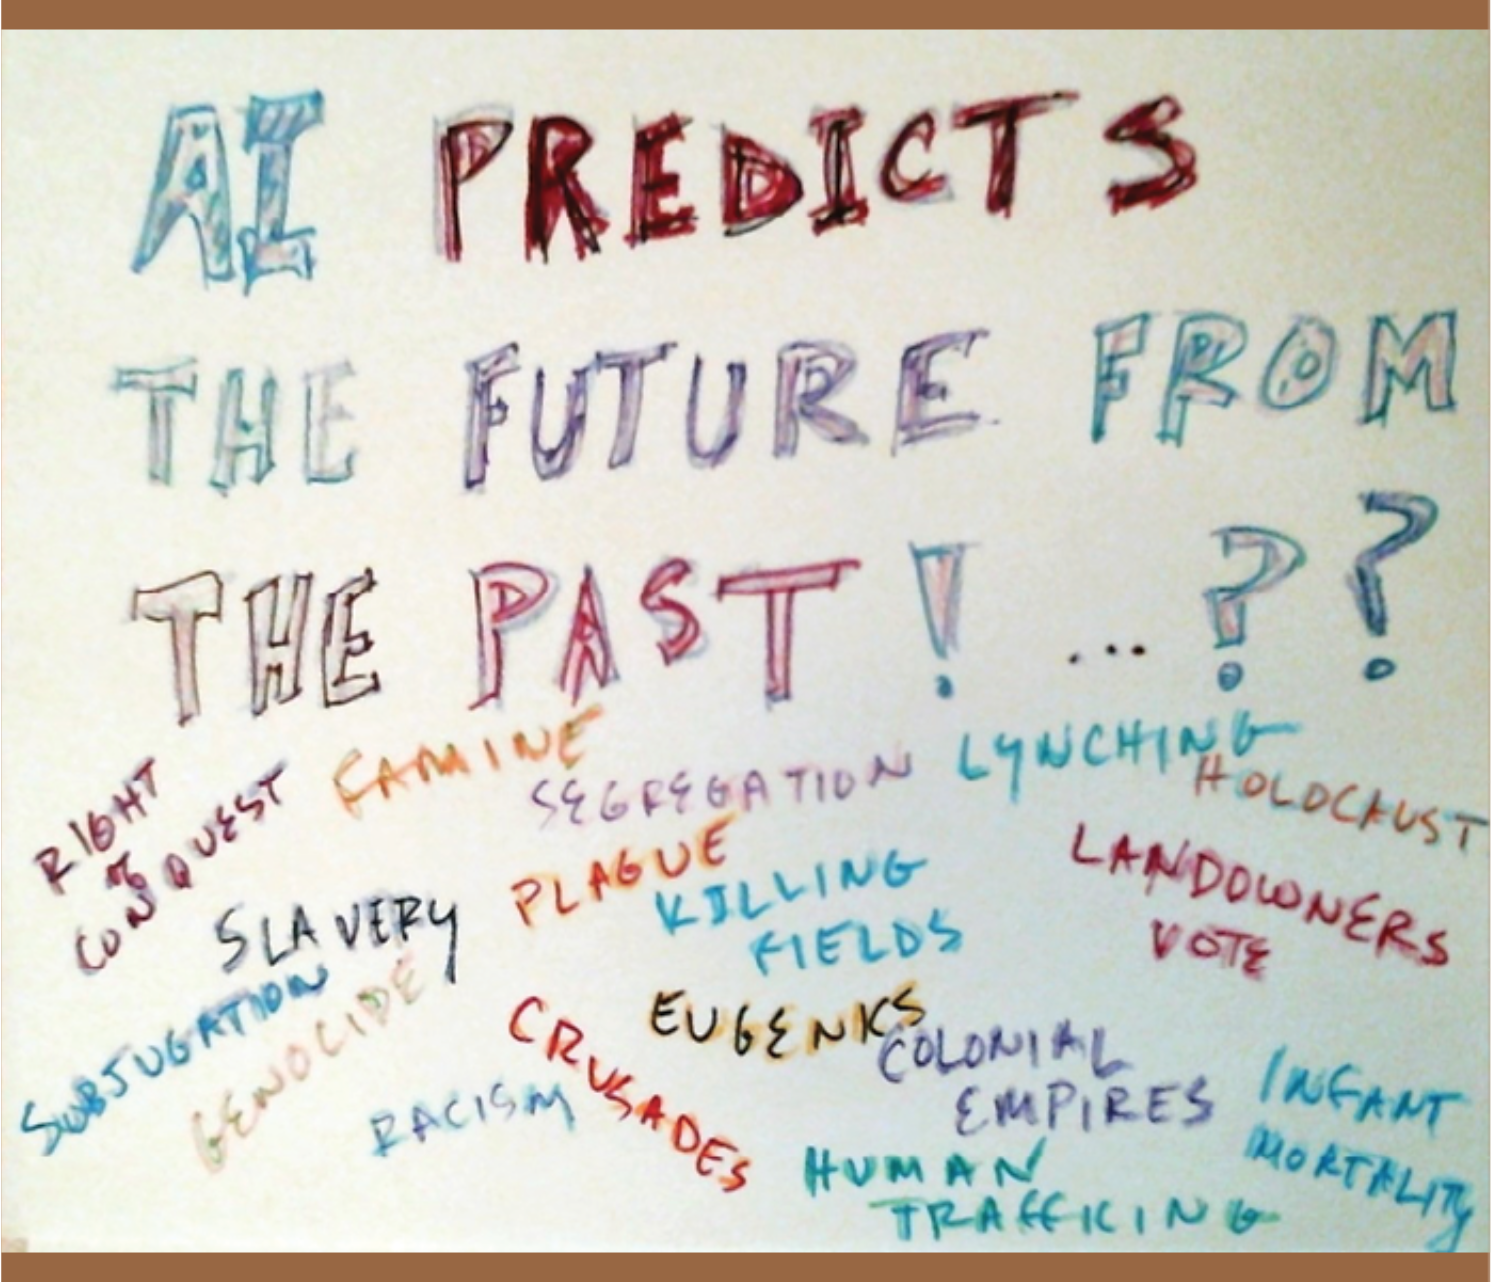 AI PREDICTS
THE FUTURE FROM
THE PAST! ... ??
RIGHT
of
CONQUEST
FAMINE
SEGREGATION
LYNCHING
HOLOCAUST
SLAVERY
PLAGUE
KILLING
FIELDS
LANDOWNERS
VOTE
SUBJUGATION
GENOCIDE
RACISM
CRUSADES
EUGENICS
COLONIAL
EMPIRES
HUMAN
TRAFFICING
INFANT
MORTALITY